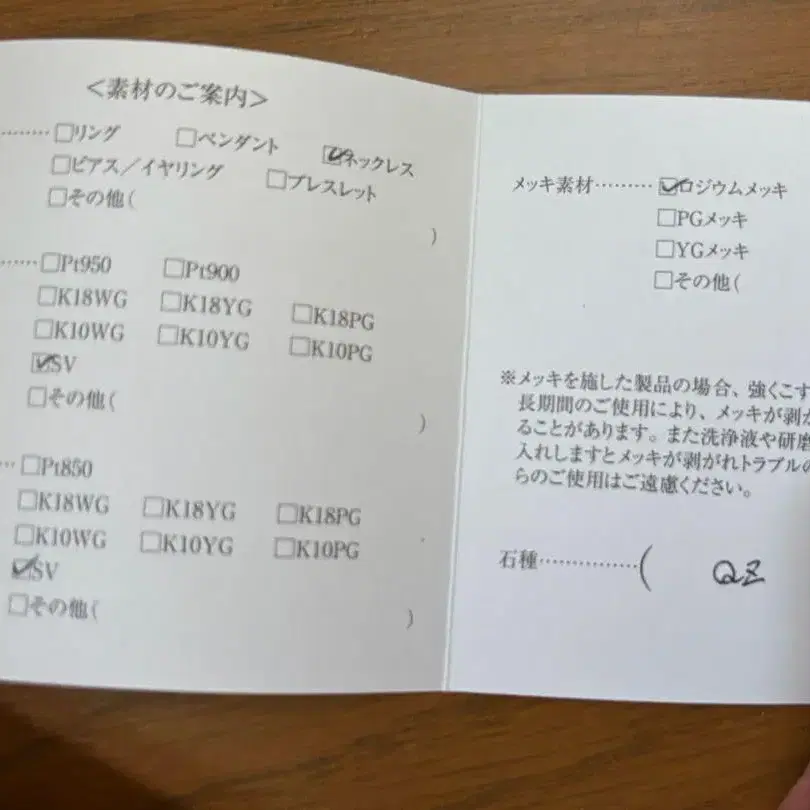 <素材のご案内>
………☐リング ☐ペンダント ☑ネックレス
☐ピアス／イヤリング ☐ブレスレット
☐その他( )
……☐Pt950 ☐Pt900
☐K18WG ☐K18YG ☐K18PG
☐K10WG ☐K10YG ☐K10PG
☑SV
☐その他( )
…☐Pt850
☐K18WG ☐K18YG ☐K18PG
☐K10WG ☐K10YG ☐K10PG
☑SV
☐その他( )
メッキ素材………☑ロジウムメッキ
☐PGメッキ
☐YGメッキ
☐その他(
※メッキを施した製品の場合、強くこす
長期間のご使用により、メッキが剥が
ることがあります。また洗浄液や研磨
入れしますとメッキが剥がれトラブルの
らのご使用はご遠慮ください。
石種……………( QZ